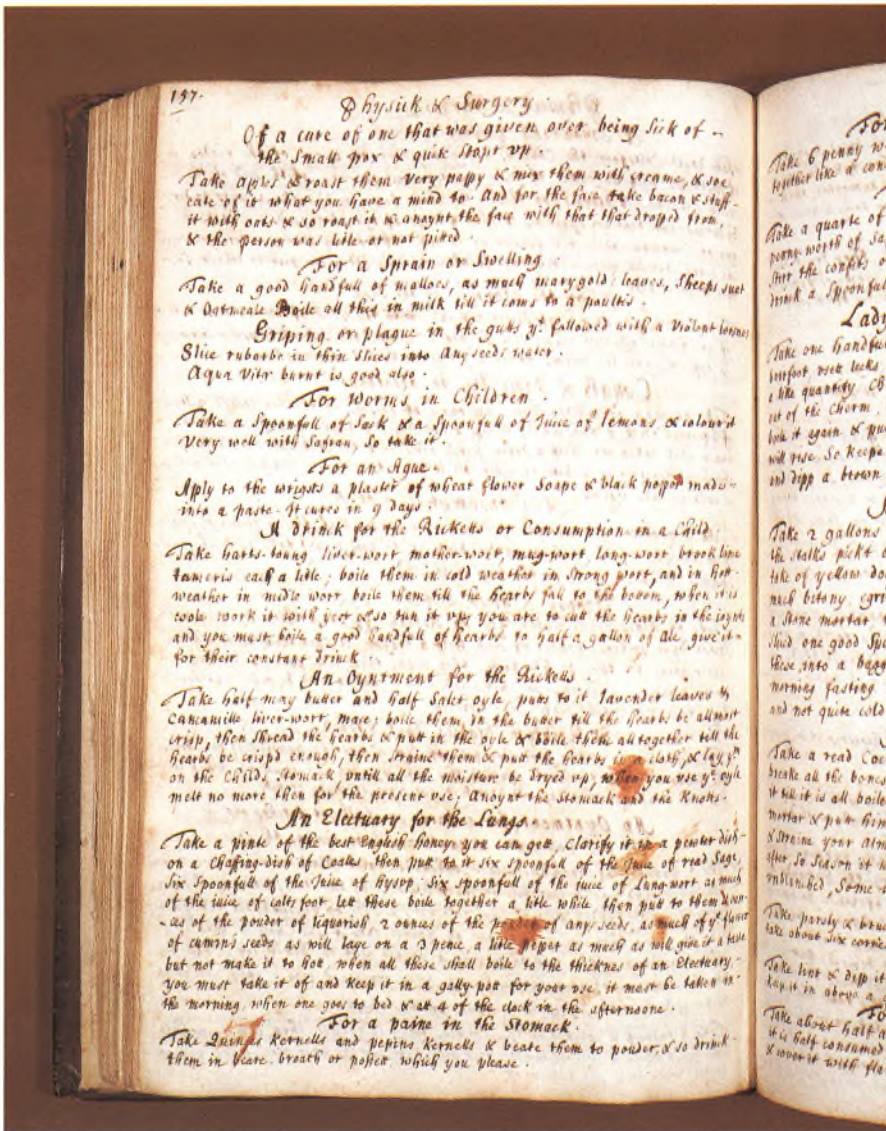 157.
Physick & Surgery.
Of a cure of one that was given over being sick of -
the small pox & quite stopt up.
Take Aples & roast them very pappy & mix them with creame, & soe
eate of it what you have a mind to. And for the face take bacon & stuff-
it with oats & so roast it & anoynt the face with that that dropd from,
& the person was litle or not pitted.
For a Sprain or Swelling
Take a good handfull of malloes, as much marygold leaves, Sheeps suet
& Oatmeale Boile all this in milk till it coms to a poultis.
Griping or plague in the gutts yt followed with a violent
Slice rubarbe in thin slices into Anyseeds water.
Aqua Vitæ burnt is good also.
For Worms in Children.
Take a Spoonfull of Sack & a Spoonfull of Juice of lemons, & colour it
very well with Safran, So take it.
For an Ague.
Aply to the wrigsts a plaster of wheat flower Soape & black pepper made-
into a paste. It cures in 9 days.
A drinck for the Ricketts or Consumption in a Child
Take harts-toung liver-wort mother-wort, mug-wort long-wort brook lime
tameris each a litle; boile them in cold weather in strong wort, and in hott-
weather in midle wort boile them till the hearbs fall to the bottom, when it is
coole work it with yest & so tun it up; you are to cutt the hearbs in the joynts
and you must boile a good handfull of hearbs to half a gallon of Ale give it-
for their constant drinck.
An Oyntment for the Ricketts.
Take half may butter and half Salet oyle, putt to it lavender leaves &
Cammamille liver-wort, mace; boile them in the butter till the hearbs be allmost
crisp, then shread the hearbs & putt in the oyle & boile them all together till the
hearbs be crispd enough, then straine them & putt the hearbs in a cloth, & lay ym
on the Childs Stomack untill all the moisture be dryed up, when you use ye oyle
melt no more then for the present use; Anoynt the Stomack and the
An Electuary for the Lungs
Take a pinte of the best English honey you can gett, Clarify it in a pewter dish-
on a Chaffing-dish of Coales, then putt to it six spoonfull of the Juice of read Sage,
Six Spoonfull of the Juice of hysop, Six spoonfull of the juice of Lung-wort as much
of the juice of colts foot, lett these boile together a litle while then putt to them
-ces of the pouder of liquorish 2 ounces of the pouder of anyseeds, as much of ye flower
of cumins seeds as will laye on a 3 pence, a litle pepper as much as will give it a tast
but not make it to hott, when all these shall boile to the thicknes of an Electuary,-
you must take it of and keep it in a gally-pott for your use. it must be taken in-
the morning, when one goes to bed & att 4 of the clock in the afternoone.
For a paine in the Stomack.
Take Quinces Kernells and pepins kernells & beate them to pouder, & so drink-
them in beare, breath or possett which you please.
For
Take 6 penny w
together like a con
Take a quarte of
penny worth of Sa
Stirr the confits
drink a Spoonfu
Lady
Take one handfu
a like quantity
out of the Cherm.
boile it again & pu
will rise. So keepe
and dipp a brown
Take 2 gallons
the stalks pickt
take of yellow do
much betony egri
a stone mortar
one good
these into a bagg
morning fasting
and not quite cold
Take a read Coc
breake all the bones
it till it is all boile
mortar & putt him
& straine your alm
after, So Season it
unblanched, Some
Take parsly & bru
take about six
Take lint & dipp it
lay it in above a
For
Take about half a
it is half consumed
& cover it with fla